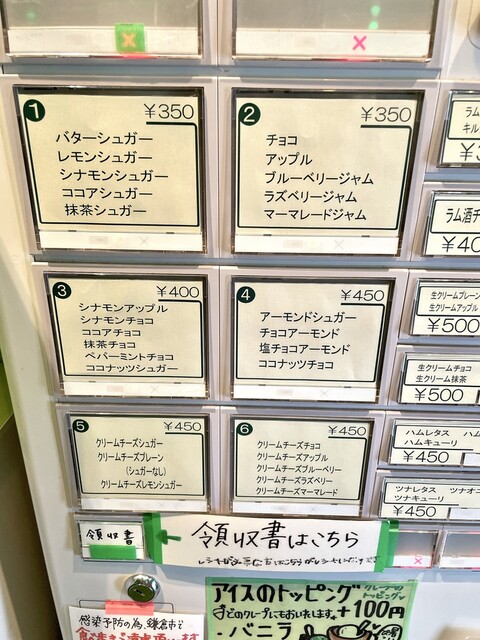 1 ¥350
バターシュガー
レモンシュガー
シナモンシュガー
ココアシュガー
抹茶シュガー
2 ¥350
チョコ
アップル
ブルーベリージャム
ラズベリージャム
マーマレードジャム
3 ¥400
シナモンアップル
シナモンチョコ
ココアチョコ
抹茶チョコ
ペパーミントチョコ
ココナッツシュガー
4 ¥450
アーモンドシュガー
チョコアーモンド
塩チョコアーモンド
ココナッツチョコ
5 ¥450
クリームチーズシュガー
クリームチーズプレーン
(シュガーなし)
クリームチーズレモンシュガー
6 ¥450
クリームチーズチョコ
クリームチーズアップル
クリームチーズブルーベリー
クリームチーズラズベリー
クリームチーズマーマレード
ラム
キル
ラム酒チ
¥40
生クリームプレーン
生クリームアップル
¥500
生クリームチョコ
生クリーム抹茶
¥500
ハムレタス ハムチーズ
ハムキューリ
¥450
ツナレタス ツナオニ
ツナキューリ
¥450
領収書
領収書はこちら
アイスのトッピング クレープのトッピング
どのクレープにもおいれします。+100円
・バニラ
感染予防の為、鎌倉市と